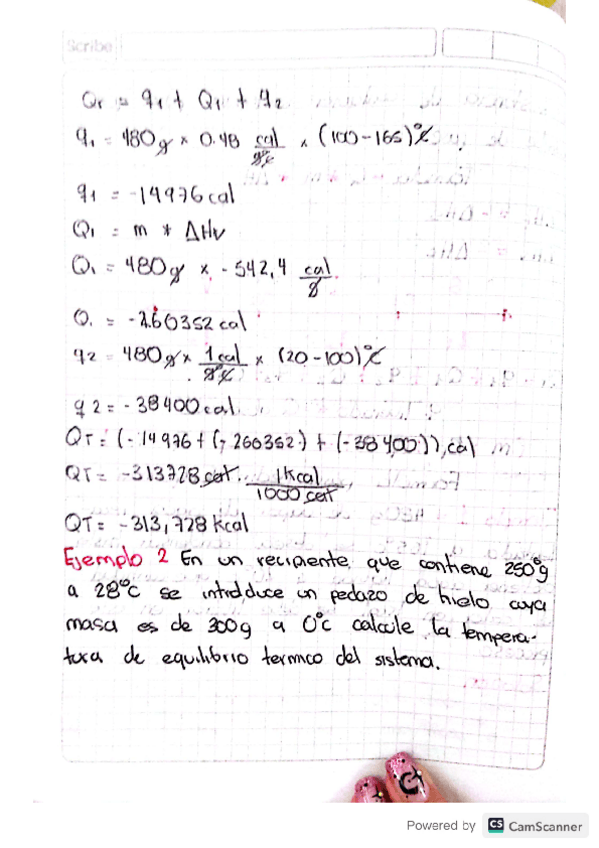 Scribe
Qr = q1 + Q1 + q2
q1 = 480g × 0.48 cal/g°c × (100-165)°c
q1 = -14976 cal
Q1 = m * ΔHv
Q1 = 480g × - 542,4 cal/g
Q1 = -260352 cal
q2 = 480g × 1cal/g°c × (20-100)°c
q2 = -38400cal.
QT = (-14976 + (-260352) + (-38400)), cal
QT = -313728 cal. 1Kcal/1000 cal
QT = -313,728 Kcal
Ejemplo 2 En un recipiente que contiene 250°g
a 28°c se introduce un pedazo de hielo cuya
masa es de 300g a 0°c calcule la tempera-
tura de equilibrio termico del sistema.
Powered by CS CamScanner